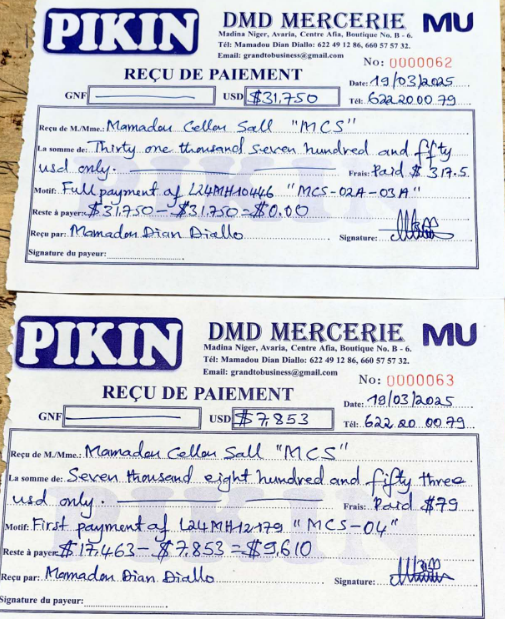 PIKIN
DMD MERCERIE MU
Madina Niger, Avaria, Centre Afia, Boutique No. B - 6.
Tél: Mamadou Dian Diallo: 622 49 12 86, 660 57 57 32.
Email: grandtobusiness@gmail.com
No: 0000062
REÇU DE PAIEMENT
Date: 19/03/2025
GNF USD $31,750
Tél: 622 20 00 79
Reçu de M./Mme.: Mamadou Cellou Sall "MCS"
La somme de: Thirty one thousand seven hundred and fifty
usd only. Frais: Paid $317.5.
Motif: Full payment of L24MH10446 "MCS-02A-03A"
Reste à payer: $31.750 - $31.750 = $0.00
Reçu par: Mamadou Dian Diallo Signature:
Signature du payeur:
PIKIN
PIKIN
DMD MERCERIE MU
Madina Niger, Avaria, Centre Afia, Boutique No. B - 6.
Tél: Mamadou Dian Diallo: 622 49 12 86, 660 57 57 32.
Email: grandtobusiness@gmail.com
No: 0000063
REÇU DE PAIEMENT
Date: 19/03/2025
GNF USD $7,853
Tél: 622 20 00 79
Reçu de M./Mme.: Mamadou Cellou Sall "MCS"
La somme de: Seven thousand eight hundred and fifty three
usd only. Frais: Paid $79
Motif: First payment of L24MH12179 "MCS-04"
Reste à payer: $17.463 - $7.853 = $9,610
Reçu par: Mamadou Dian Diallo Signature:
Signature du payeur:
PIKIN